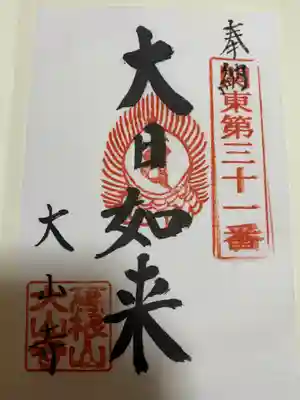 奉納
東第三十一番
大日如来
大山寺
大山寺